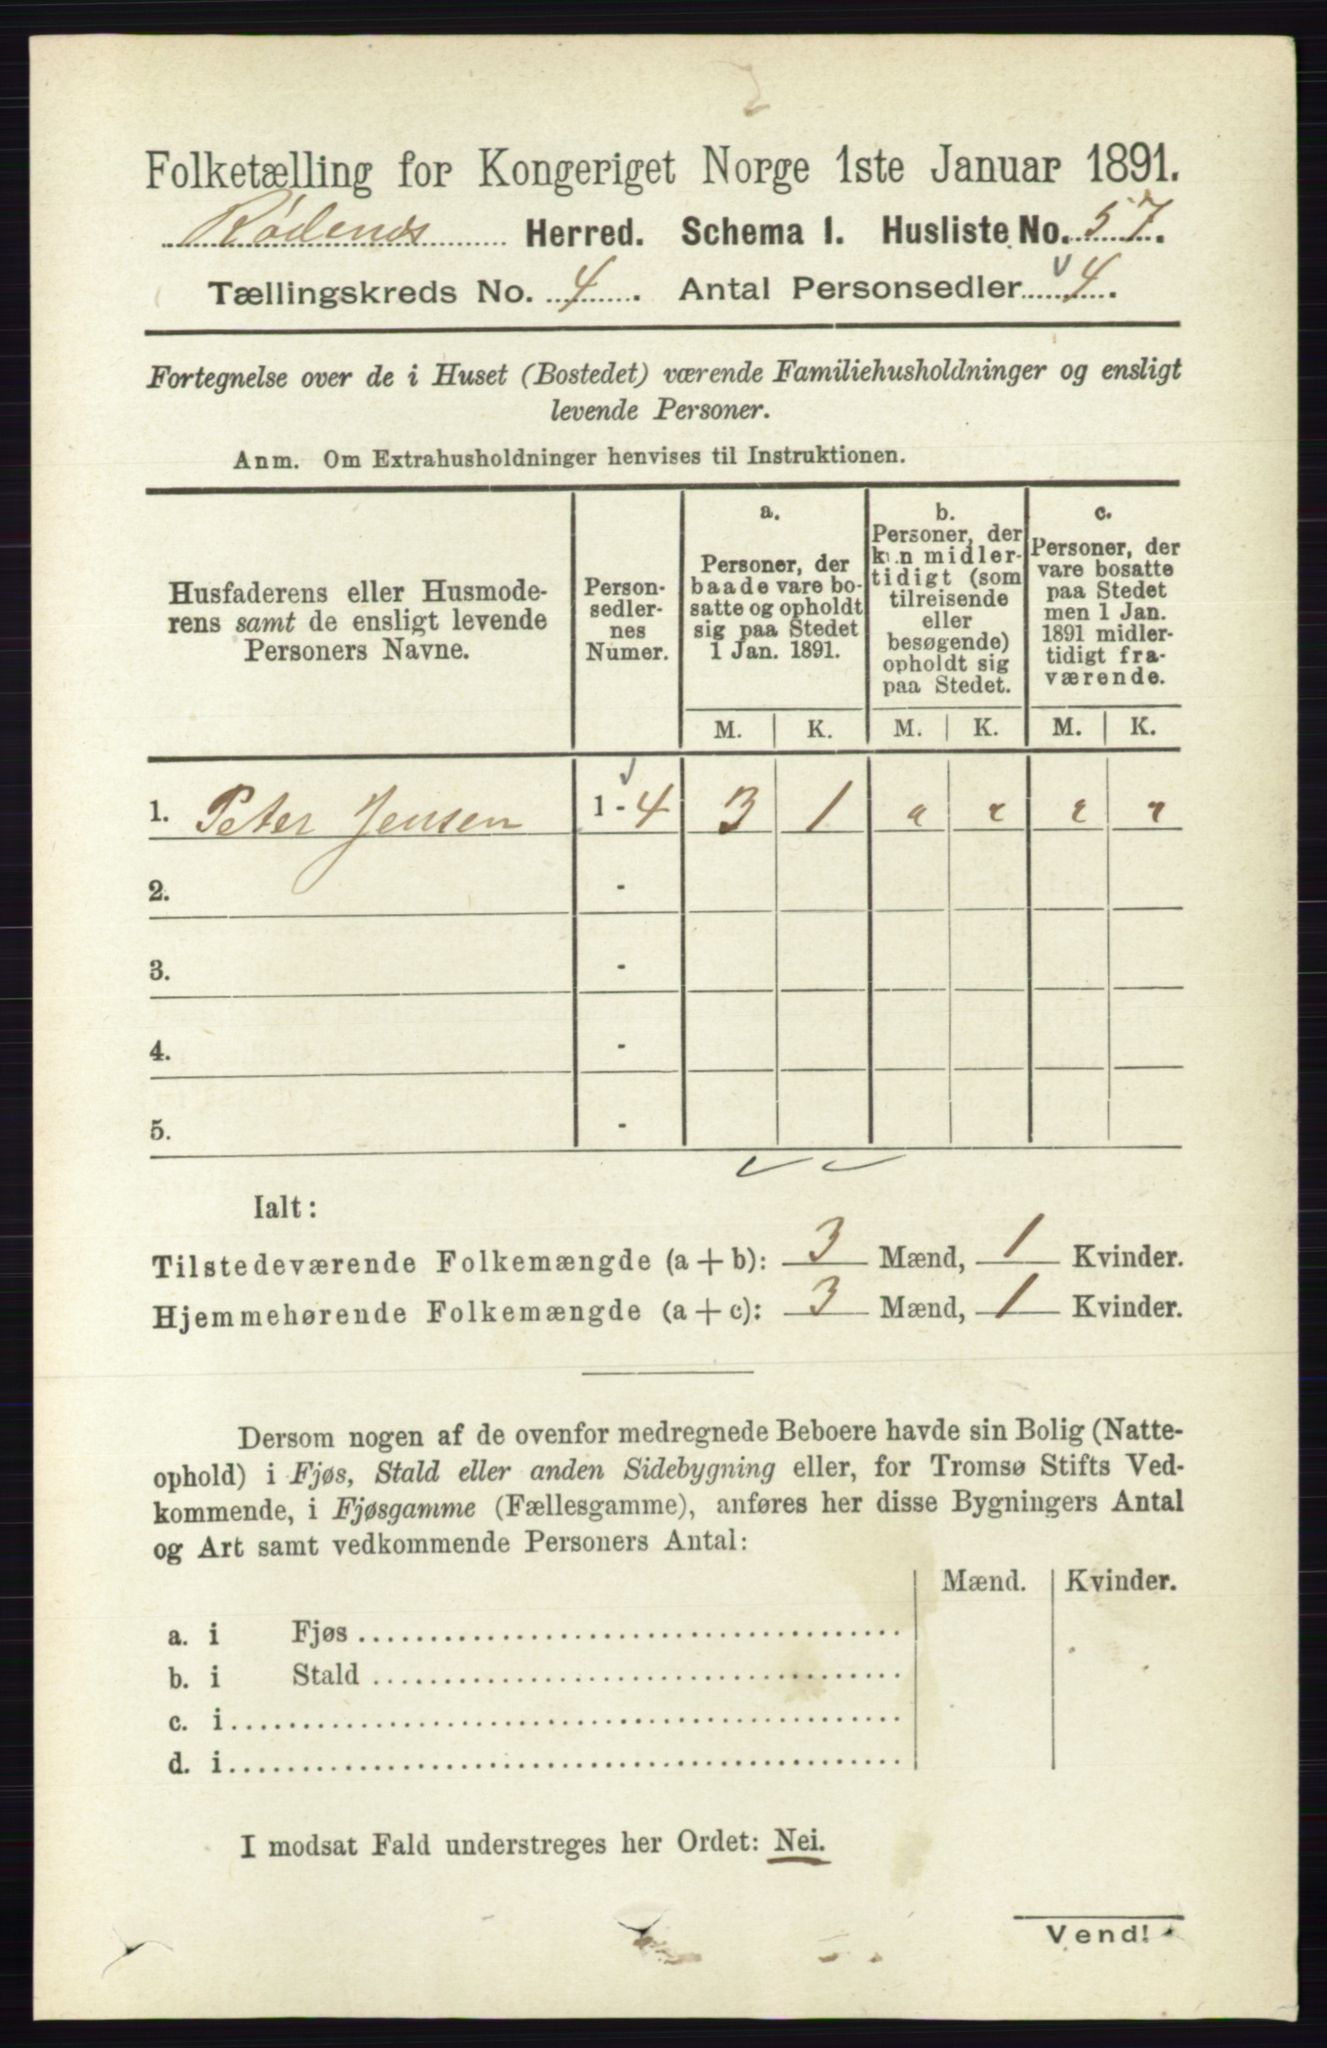 Folketælling for Kongeriget Norge 1ste Januar 1891.
Rødenes Herred. Schema 1. Husliste No. 57.
Tællingskreds No. 4. Antal Personsedler 4.
Fortegnelse over de i Huset (Bostedet) værende Familiehusholdninger og ensligt
levende Personer.
Anm. Om Extrahusholdninger henvises til Instruktionen.
Husfaderens eller Husmode-
rens samt de ensligt levende
Personers Navne.
Person-
sedler-
nes
Numer.
a.
Personer, der
baade vare bo-
satte og opholdt
sig paa Stedet
1 Jan. 1891.
b.
Personer, der
kun midler-
tidigt (som
tilreisende
eller
besøgende)
opholdt sig
paa Stedet.
c.
Personer, der
vare bosatte
paa Stedet
men 1 Jan.
1891 midler-
tidigt fra-
værende.
M. K. M. K. M. K.
1. Peter Jensen 1 - 4 3 1
2. -
3. -
4. -
5. -
Ialt:
Tilstedeværende Folkemængde (a + b): 3 Mænd, 1 Kvinder.
Hjemmehørende Folkemængde (a + c): 3 Mænd, 1 Kvinder.
Dersom nogen af de ovenfor medregnede Beboere havde sin Bolig (Natte-
ophold) i Fjøs, Stald eller anden Sidebygning eller, for Tromsø Stifts Ved-
kommende, i Fjøsgamme (Fællesgamme), anføres her disse Bygningers Antal
og Art samt vedkommende Personers Antal:
Mænd. Kvinder.
a. i Fjøs
b. i Stald
c. i
d. i
I modsat Fald understreges her Ordet: Nei.
Vend!